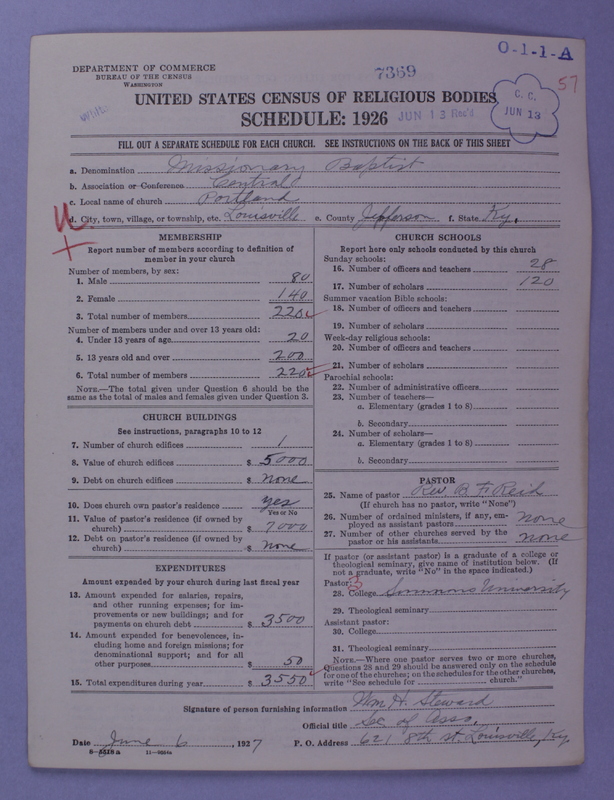 O-1-1-A
DEPARTMENT OF COMMERCE
BUREAU OF THE CENSUS
WASHINGTON
7369
57
White
UNITED STATES CENSUS OF RELIGIOUS BODIES
SCHEDULE: 1926
JUN 13 Rec'd
C. C.
JUN 13
FILL OUT A SEPARATE SCHEDULE FOR EACH CHURCH. SEE INSTRUCTIONS ON THE BACK OF THIS SHEET
a. Denomination Missionary Baptist
b. Association or Conference Central
c. Local name of church Portland
d. City, town, village, or township, etc. Louisville e. County Jefferson f. State Ky.
U
MEMBERSHIP
Report number of members according to definition of
member in your church
Number of members, by sex:
1. Male 80
2. Female 140
3. Total number of members 220
Number of members under and over 13 years old:
4. Under 13 years of age 20
5. 13 years old and over 200
6. Total number of members 220
NOTE.—The total given under Question 6 should be the
same as the total of males and females given under Question 3.
CHURCH BUILDINGS
See instructions, paragraphs 10 to 12
7. Number of church edifices 1
8. Value of church edifices $ 5000
9. Debt on church edifices $ None
10. Does church own pastor's residence? yes
Yes or No
11. Value of pastor's residence (if owned by
church) $ 7000
12. Debt on pastor's residence (if owned by
church) $ None
EXPENDITURES
Amount expended by your church during last fiscal year
13. Amount expended for salaries, repairs,
and other running expenses; for im-
provements or new buildings; and for
payments on church debt $ 3500
14. Amount expended for benevolences, in-
cluding home and foreign missions; for
denominational support; and for all
other purposes $ 50
15. Total expenditures during year $ 3550
CHURCH SCHOOLS
Report here only schools conducted by this church
Sunday schools:
16. Number of officers and teachers 28
17. Number of scholars 120
Summer vacation Bible schools:
18. Number of officers and teachers
19. Number of scholars
Week-day religious schools:
20. Number of officers and teachers
21. Number of scholars
Parochial schools:
22. Number of administrative officers
23. Number of teachers—
a. Elementary (grades 1 to 8)
b. Secondary
24. Number of scholars—
a. Elementary (grades 1 to 8)
b. Secondary $
PASTOR
25. Name of pastor Rev. B. F. Reid
(If church has no pastor, write "None")
26. Number of ordained ministers, if any, em-
ployed as assistant pastors None
27. Number of other churches served by the
pastor or his assistants None
If pastor (or assistant pastor) is a graduate of a college or
theological seminary, give name of institution below. (If
not a graduate, write "No" in the space indicated.)
Pastor: 3
28. College Simmons University
29. Theological seminary
Assistant pastor:
30. College
31. Theological seminary
NOTE.—Where one pastor serves two or more churches,
Questions 28 and 29 should be answered only on the schedule
for one of the churches; on the schedules for the other churches,
write "See schedule for church."
Signature of person furnishing information Wm H. Steward
Official title Sec of Asso.
Date June 6, 1927 P. O. Address 621 8th st. Louisville, Ky.